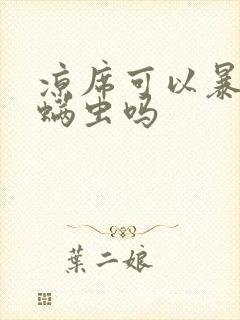 凉席可以暴
螨虫吗
葉二娘